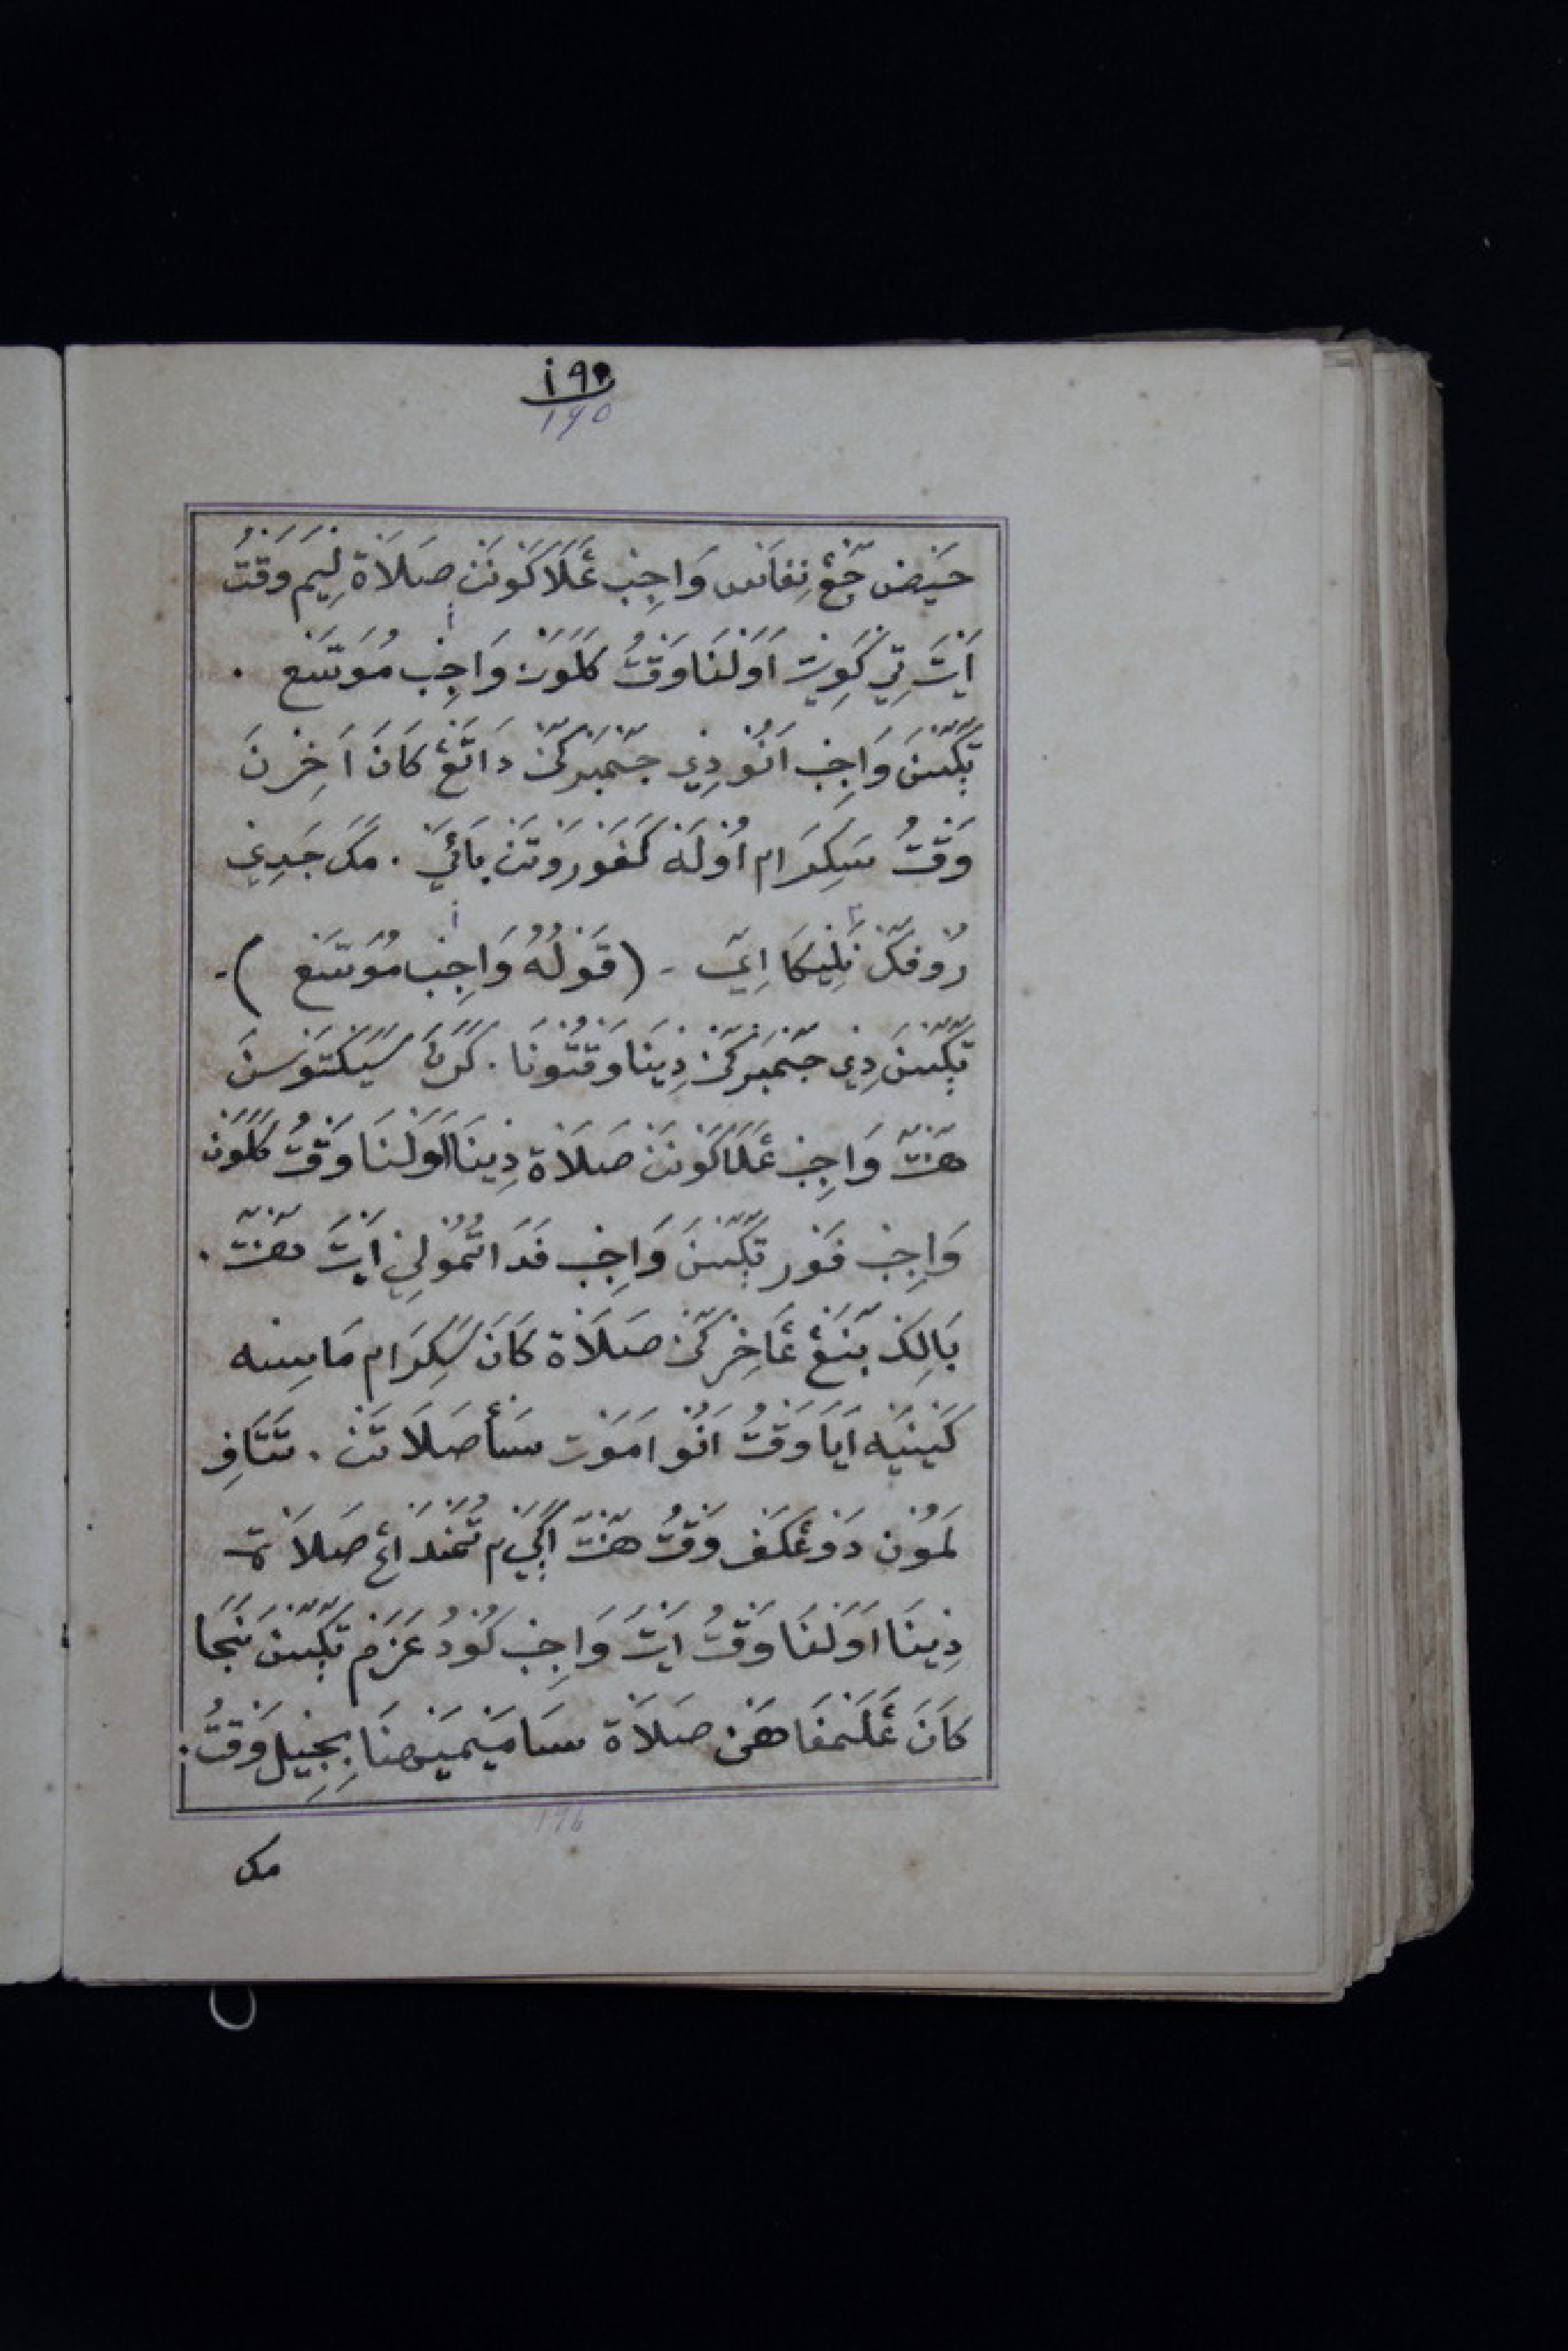 ١٩٥
195
حَيْضْ جٓڠْ نِفَاسْ وَاجِبْ عَلَاكَوْنَنْ صَلَاةْ لِيْمَ وَقْتُ
اَيْتَ تِيْ كَوِيْتْ اَوَلْنَا وَقْتُ كَلَوَنْ وَاجِبْ مُوَسَّعْ .
تٓڬٓسَنَ وَاجِبْ اَنُوْ دِيْ جٓمْبَرْكٓنْ دَاتٓڠْ كَانَ اَخِرْنَ
وَقْتُ سَكِرَامْ اُوْلَهْ كَفَوْرَوْتَنْ بَائَيْ . مَكَ جَدِيْ
رُوْفٓكْ نَلِيْكَا اِيَ - (قَوْلُهُ وَاجِبْ مُوَسَّعْ) -
تٓڬٓسَنَ دِيْ جٓمْبَرْكٓنْ دِيْنَا وَقْتُوْنَا . كَرَنَ سَيَكْتَوْسَنَ
هَنْتٓ وَاجِبْ عَلَاكَوْنَنْ صَلَاةْ دِيْنَا اَوَلْنَا وَقْتُ كَلَوَنْ
وَاجِبْ فَوْرْ تٓڬٓسَنَ وَاجِبْ فَدَا تُمُوْلِيْ اَيْتَ هَنْتٓ .
بَالِكَنْ بٓنَڠْ عَاخِرْكٓنْ صَلَاةْ كَانَ سَكِرَامْ مَاسِيْهْ
كَيْنَيْهْ اَيَا وَقْتُ اَنُوْ اَمَوْتْ سَأَ صَلَاتَنْ . تَتَافِ
لَمُوْنْ دَوْعْكَفْ وَقْتُ هَنْتٓ اَڬَيْ مْ تُمَنْدَاڠْ صَلَاةْ
دِيْنَا اَوَلْنَا وَقْتُ اَيْتَ وَاجِبْ كُوْدُ عَزَمْ تٓڬٓسَنَ نٓجَا
كَانَ عَلَمْفَاهَنْ صَلَاةْ سَامَيْمَيْهْنَا بِجِيْلْ وَقْتُ .
196
مك